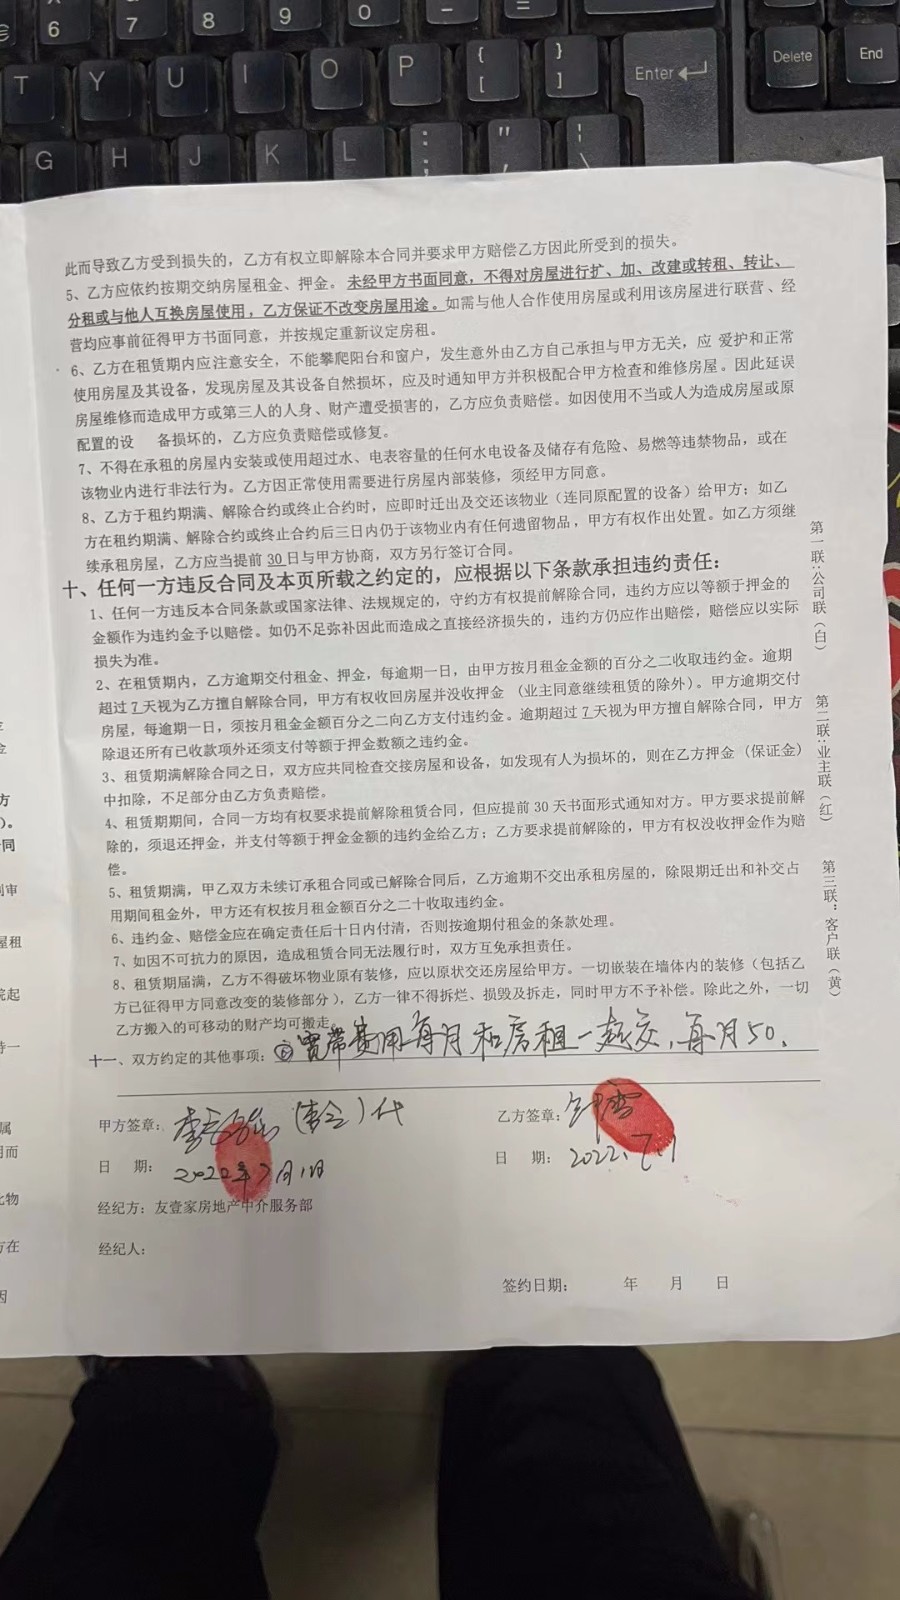 6 7 8 9 0 - =
T Y U I O P { [ } ] Enter Delete End
G H J K L : ; " ' ¦ \
此而导致乙方受到损失的，乙方有权立即解除本合同并要求甲方赔偿乙方因此所受到的损失。
5、乙方应依约按期交纳房屋租金、押金。未经甲方书面同意，不得对房屋进行扩、加、改建或转租、转让、
分租或与他人互换房屋使用，乙方保证不改变房屋用途。如需与他人合作使用房屋或利用该房屋进行联营、经
营均应事前征得甲方书面同意，并按规定重新议定房租。
6、乙方在租赁期内应注意安全，不能攀爬阳台和窗户，发生意外由乙方自己承担与甲方无关，应 爱护和正常
使用房屋及其设备，发现房屋及其设备自然损坏，应及时通知甲方并积极配合甲方检查和维修房屋。因此延误
房屋维修而造成甲方或第三人的人身、财产遭受损害的，乙方应负责赔偿。如因使用不当或人为造成房屋或原
配置的设 备损坏的，乙方应负责赔偿或修复。
7、不得在承租的房屋内安装或使用超过水、电表容量的任何水电设备及储存有危险、易燃等违禁物品，或在
该物业内进行非法行为。乙方因正常使用需要进行房屋内部装修，须经甲方同意。
8、乙方于租约期满、解除合约或终止合约时，应即时迁出及交还该物业（连同原配置的设备）给甲方；如乙
方在租约期满、解除合约或终止合约后三日内仍于该物业内有任何遗留物品，甲方有权作出处置。如乙方须继
续承租房屋，乙方应当提前 30 日与甲方协商，双方另行签订合同。
十、任何一方违反合同及本页所载之约定的，应根据以下条款承担违约责任：
1、任何一方违反本合同条款或国家法律、法规规定的，守约方有权提前解除合同，违约方应以等额于押金的
金额作为违约金予以赔偿。如仍不足弥补因此而造成之直接经济损失的，违约方仍应作出赔偿，赔偿应以实际
损失为准。
2、在租赁期内，乙方逾期交付租金、押金，每逾期一日，由甲方按月租金金额的百分之二收取违约金。逾期
超过 7 天视为乙方擅自解除合同，甲方有权收回房屋并没收押金 （业主同意继续租赁的除外）。甲方逾期交付
房屋，每逾期一日，须按月租金金额百分之二向乙方支付违约金。逾期超过 7 天视为甲方擅自解除合同，甲方
除退还所有已收款项外还须支付等额于押金数额之违约金。
3、租赁期满解除合同之日，双方应共同检查交接房屋和设备，如发现有人为损坏的，则在乙方押金（保证金）
中扣除，不足部分由乙方负责赔偿。
4、租赁期期间，合同一方均有权要求提前解除租赁合同，但应提前 30 天书面形式通知对方。甲方要求提前解
除的，须退还押金，并支付等额于押金金额的违约金给乙方；乙方要求提前解除的，甲方有权没收押金作为赔
偿。
5、租赁期满，甲乙双方未续订承租合同或已解除合同后，乙方逾期不交出承租房屋的，除限期迁出和补交占
用期间租金外，甲方还有权按月租金额百分之二十收取违约金。
6、违约金、赔偿金应在确定责任后十日内付清，否则按逾期付租金的条款处理。
7、如因不可抗力的原因，造成租赁合同无法履行时，双方互免承担责任。
8、租赁期届满，乙方不得破坏物业原有装修，应以原状交还房屋给甲方。一切嵌装在墙体内的装修（包括乙
方已征得甲方同意改变的装修部分），乙方一律不得拆烂、损毁及拆走，同时甲方不予补偿。除此之外，一切
乙方搬入的可移动的财产均可搬走。
十一、双方约定的其他事项：宽带费用每月和房租一起交，每月50.
甲方签章： 代
乙方签章：
日 期： 2022年7月1日
日 期： 2022.7.1
经纪方：友壹家房地产中介服务部
经纪人：
签约日期： 年 月 日
第一联：公司联（白）
第二联：业主联（红）
第三联：客户联（黄）